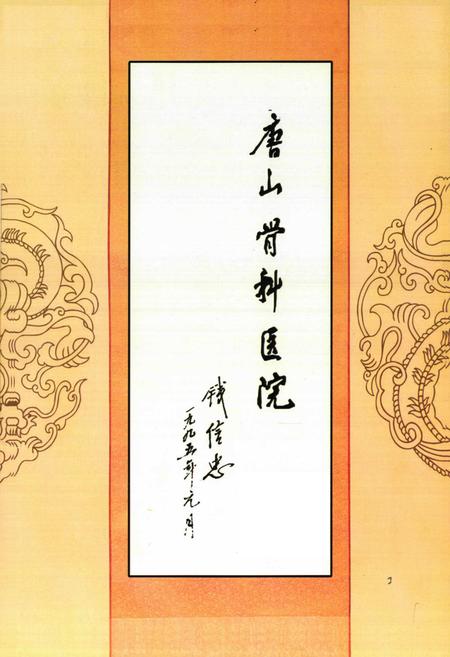 唐山骨科医院
钱信忠
一九九五年元月